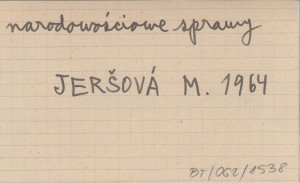 narodowościowe sprawy
JERŠOVÁ M. 1964
BT/062/1538